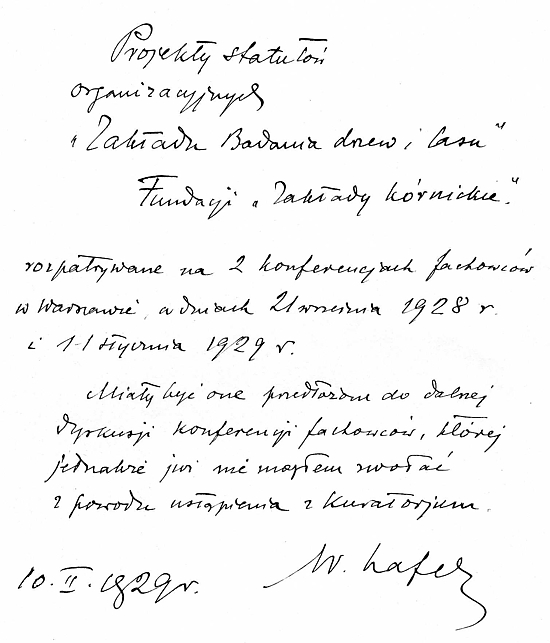 Projekty statutów
organizacyjnych
„Zakładu Badania drzew i lasu”
Fundacji „Zakłady Kórnickie”.
rozpatrywane na 2 konferencjach fachowców
w Warszawie, w dniach 21 września 1928 r.
i 11 stycznia 1929 r.
Miały być one przedłożone do dalszej
dyskusji konferencji fachowców, której
jednakże już nie mogłem zwołać
z powodu ustąpienia z Kuratorjum.
10. II. 1929 r.
W. Szafer